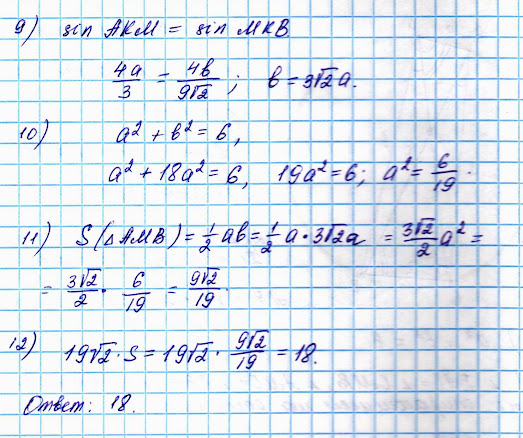 9) sin AKM = sin MKB
4a/3 = 4b/9√2 ; b = 3√2a.
10) a² + b² = 6,
a² + 18a² = 6, 19a² = 6; a² = 6/19.
11) S(△AMB) = 1/2 ab = 1/2 a·3√2a = 3√2/2 a² =
= 3√2/2 · 6/19 = 9√2/19.
12) 19√2·S = 19√2 · 9√2/19 = 18.
Ответ: 18.